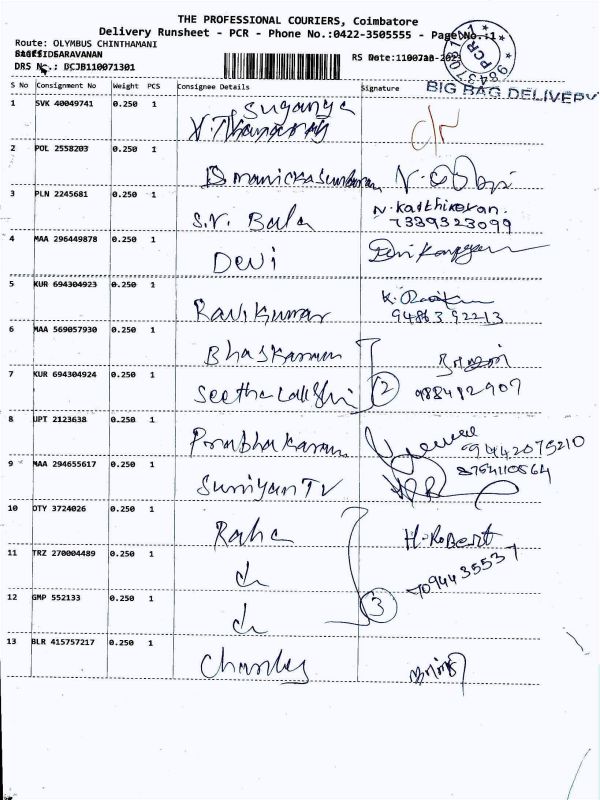 THE PROFESSIONAL COURIERS, Coimbatore
Delivery Runsheet - PCR - Phone No.:0422-3505555 - Page No.:1
Route: OLYMBUS CHINTHAMANI
SARAVANAN
DRS No.: DCJB110071301
BIG BAG DELIVERY
PCR
S No Consignment No Weight PCS Consignee Details Signature
1 SVK 40049741 0.250 1 Suganya
2 POL 2558203 0.250 1
3 PLN 2245681 0.250 1 S.V. Bala N. Karthikeyan.
7339323099
4 MAA 296449878 0.250 1 Devi
5 KUR 694304923 0.250 1 Ravi Kumar
94863 92213
6 MAA 569057930 0.250 1 Bhaskaran
7 KUR 694304924 0.250 1 Seethalakshmi 2
9884 12907
8 UPT 2123638 0.250 1 Prabhakaran
9442075210
9 MAA 294655617 0.250 1 Suriyan TV
8754110564
10 OTY 3724026 0.250 1 H. Robert
11 TRZ 270004489 0.250 1
12 GMP 552133 0.250 1 3
13 BLR 415757217 0.250 1